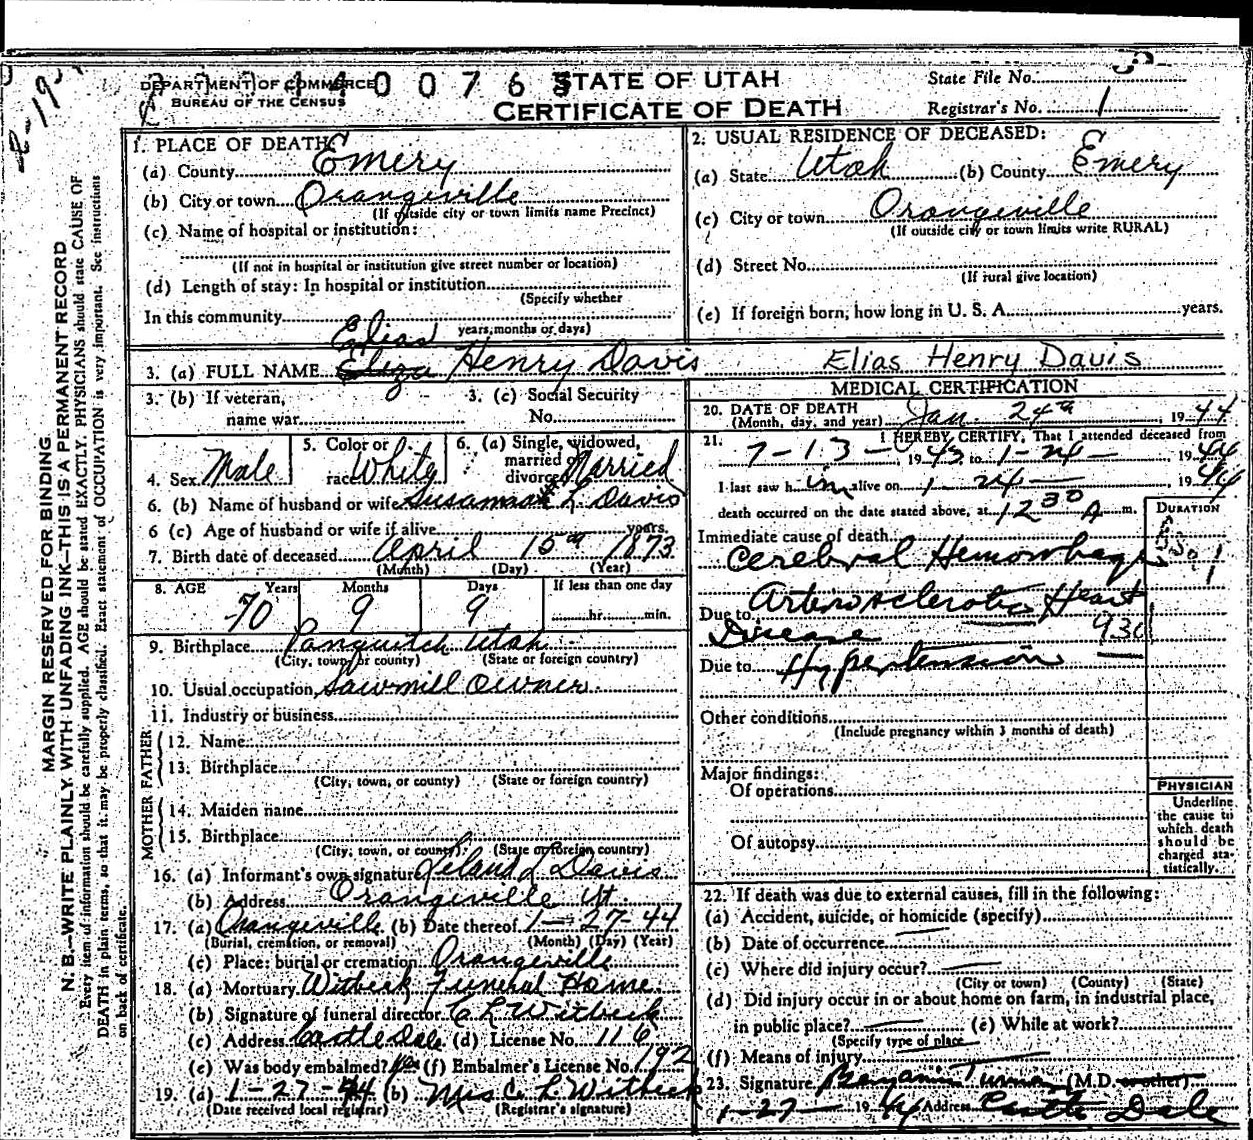 DEPARTMENT OF COMMERCE
BUREAU OF THE CENSUS
STATE OF UTAH
CERTIFICATE OF DEATH
State File No.
Registrar's No. 1
MARGIN RESERVED FOR BINDING
N. B.—WRITE PLAINLY WITH UNFADING INK—THIS IS A PERMANENT RECORD
Every item of information should be carefully supplied. AGE should be stated EXACTLY. PHYSICIANS should state CAUSE OF
DEATH in plain terms, so that it may be properly classified. Exact statement of OCCUPATION is very important. See instructions
on back of certificate.
1. PLACE OF DEATH:
(a) County Emery
(b) City or town Orangeville
(If outside city or town limits name Precinct)
(c) Name of hospital or institution:
(If not in hospital or institution give street number or location)
(d) Length of stay: In hospital or institution
(Specify whether
In this community
years, months or days)
2. USUAL RESIDENCE OF DECEASED:
(a) State Utah (b) County Emery
(c) City or town Orangeville
(If outside city or town limits write RURAL)
(d) Street No.
(If rural give location)
(e) If foreign born, how long in U. S. A. years.
Elias
3. (a) FULL NAME Eliza Henry Davis Elias Henry Davis
3. (b) If veteran,
name war
3. (c) Social Security
No.
4. Sex Male
5. Color or
race White
6. (a) Single, widowed,
married or
divorced Married
6. (b) Name of husband or wife Susannah L. Davis
6 (c) Age of husband or wife if alive years.
7. Birth date of deceased April 15th 1873
(Month) (Day) (Year)
8. AGE Years Months Days If less than one day
70 9 9 hr. min.
9. Birthplace Panguitch Utah
(City, town, or county) (State or foreign country)
10. Usual occupation Sawmill Owner
11. Industry or business
FATHER
12. Name
13. Birthplace
(City, town, or county) (State or foreign country)
MOTHER
14. Maiden name
15. Birthplace
(City, town, or county) (State or foreign country)
16. (a) Informant's own signature Leland L Davis
(b) Address Orangeville Ut.
17. (a) Orangeville (b) Date thereof 1-27-44
(Burial, cremation, or removal) (Month) (Day) (Year)
(c) Place: burial or cremation Orangeville
18. (a) Mortuary Witbeck Funeral Home
(b) Signature of funeral director C L Witbeck
(c) Address Castle Dale (d) License No. 116
(e) Was body embalmed? Yes (f) Embalmer's License No. 192
19. (a) 1-27-44 (b) Mrs C. L. Witbeck
(Date received local registrar) (Registrar's signature)
MEDICAL CERTIFICATION
20. DATE OF DEATH
(Month, day, and year) Jan. 24th, 1944
21. I HEREBY CERTIFY, That I attended deceased from
7-13- 1943 to 1-24- 1944
I last saw him alive on 1-24- 1944
death occurred on the date stated above, at 12 30 A m.
DURATION
Immediate cause of death
Cerebral Hemorrhage
Due to Arteriosclerotic Heart
Disease 93c
Due to Hypertension
Other conditions
(Include pregnancy within 3 months of death)
Major findings:
Of operations
Of autopsy
PHYSICIAN
Underline
the cause to
which death
should be
charged sta-
tistically.
22. If death was due to external causes, fill in the following:
(a) Accident, suicide, or homicide (specify)
(b) Date of occurrence
(c) Where did injury occur?
(City or town) (County) (State)
(d) Did injury occur in or about home on farm, in industrial place,
in public place? (e) While at work?
(Specify type of place
(f) Means of injury
23. Signature Benjamin Turman (M.D. or other)
1-27- 1944 Address Castle Dale